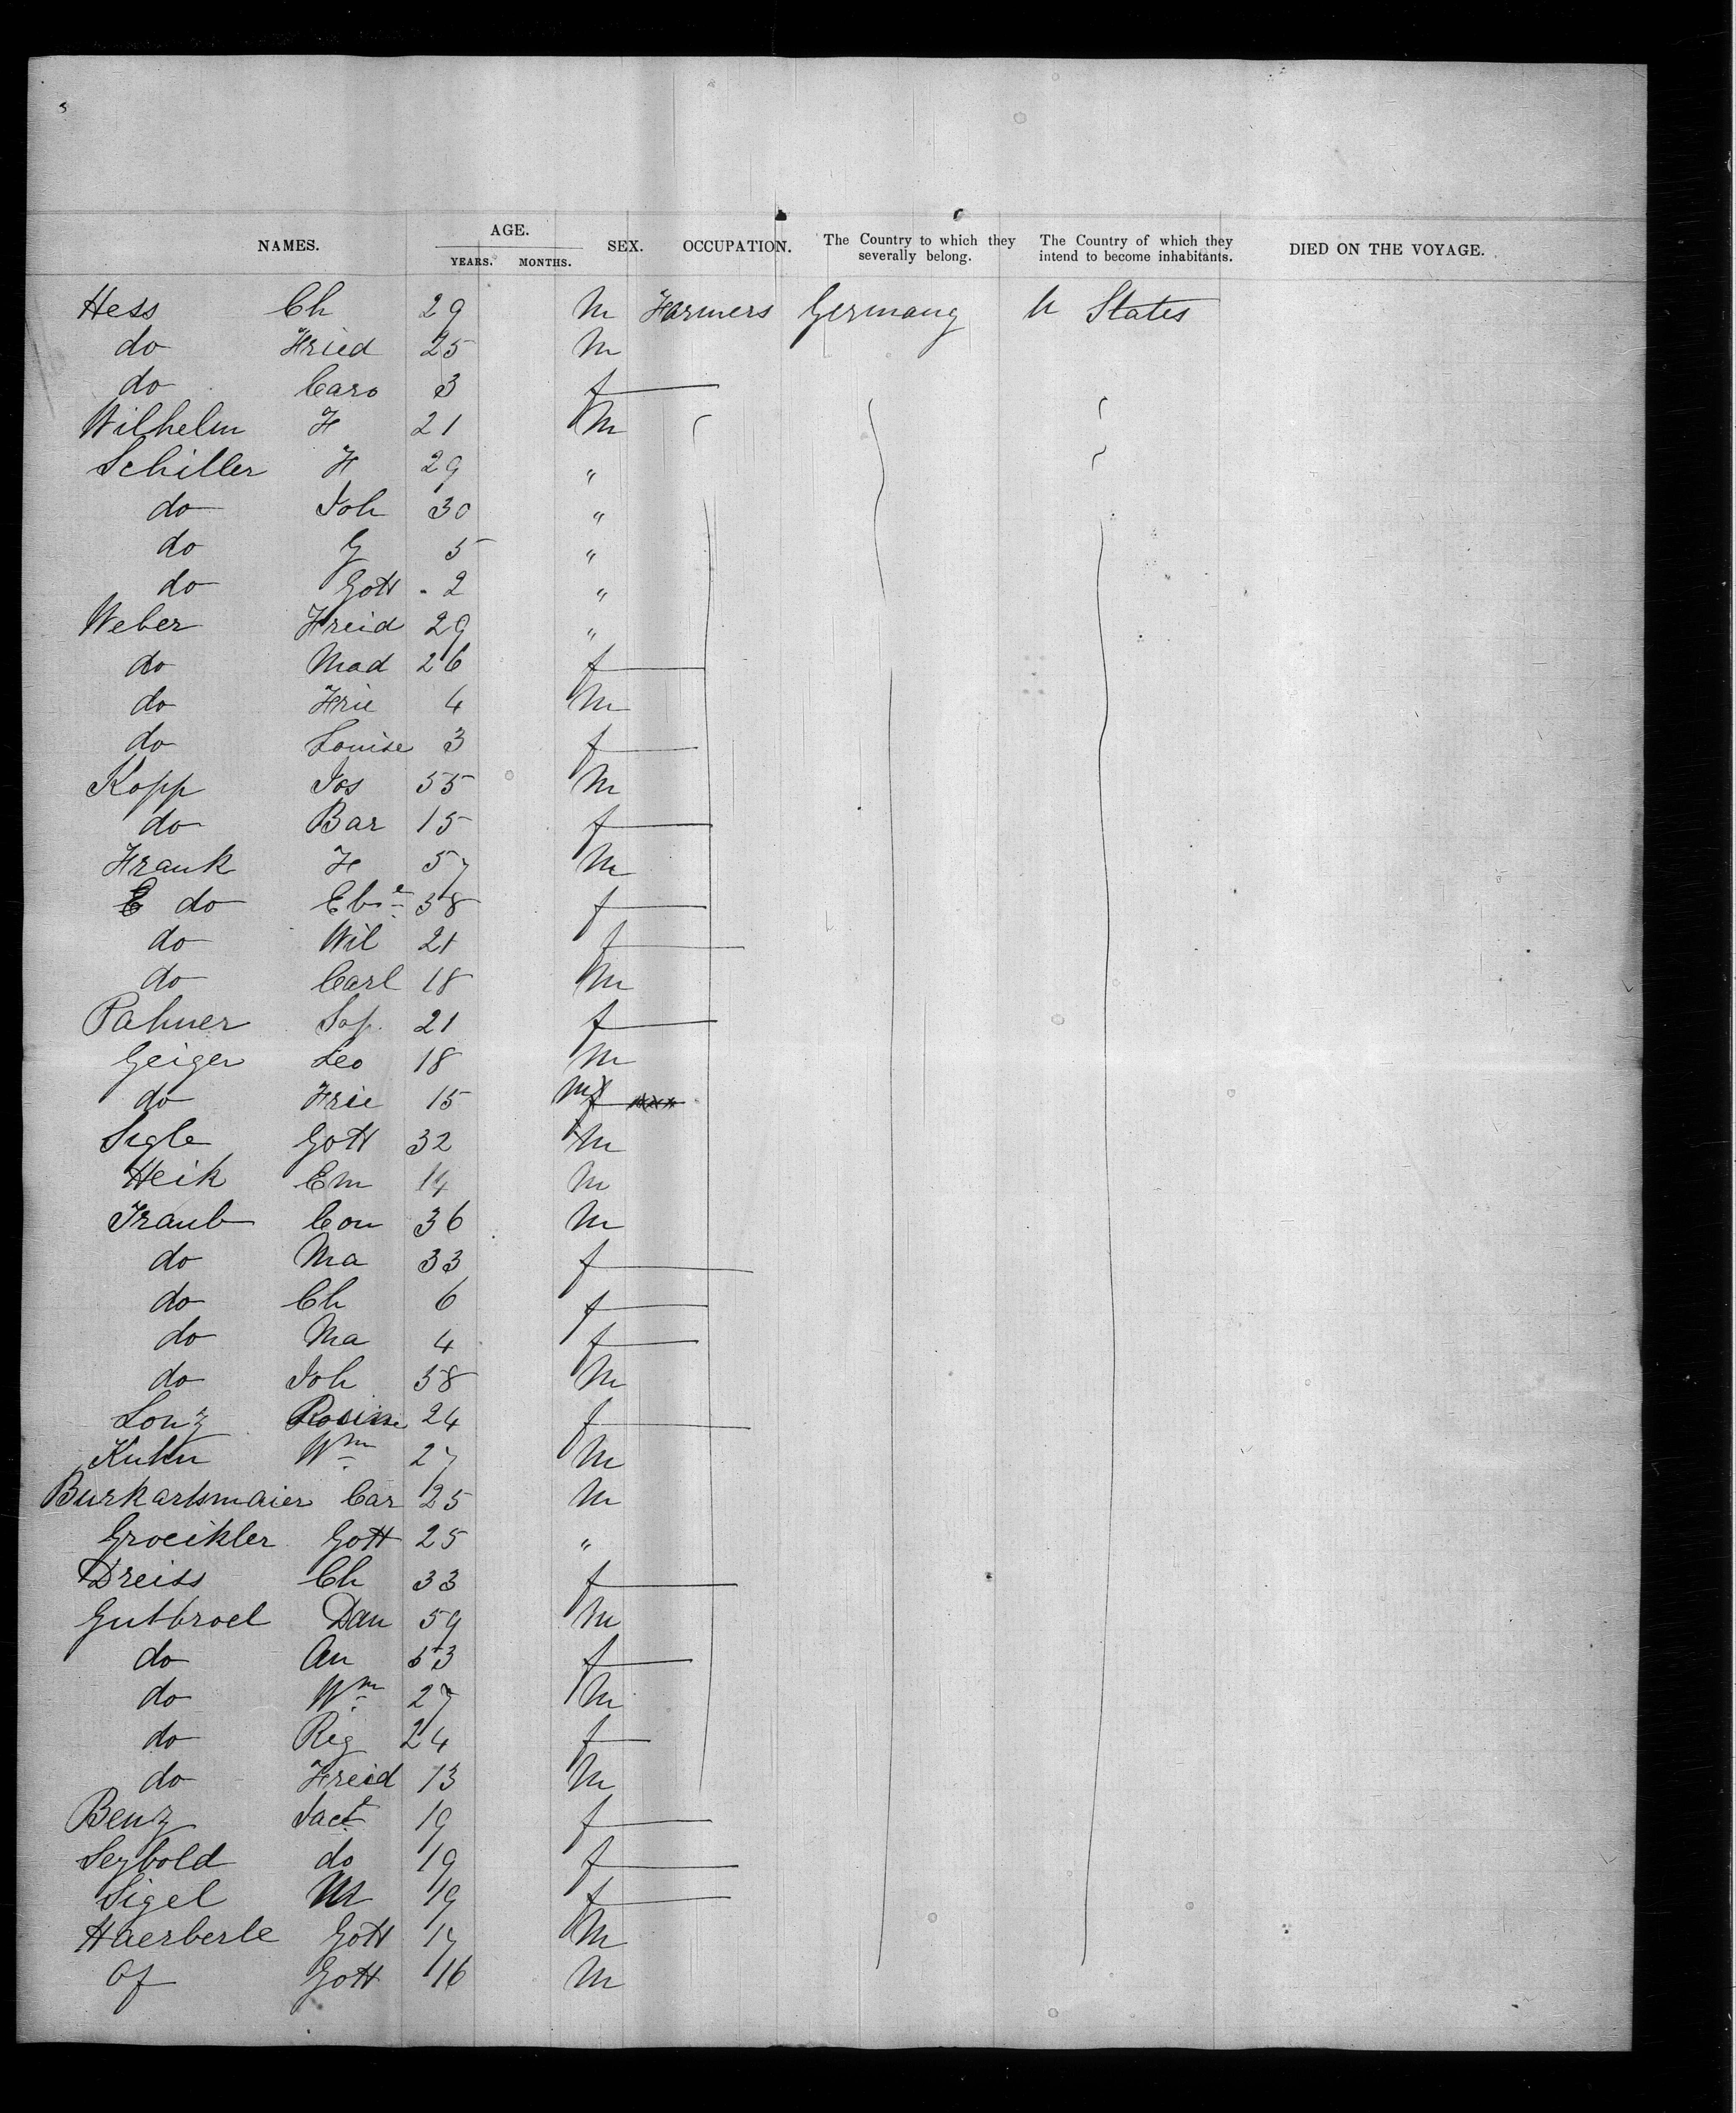 NAMES. AGE. YEARS. MONTHS. SEX. OCCUPATION. The Country to which they severally belong. The Country of which they intend to become inhabitants. DIED ON THE VOYAGE.
Hess Ch 29 M Farmers Germany U States
do Fried 25 M
do Caro 3 f
Wilhelm F 21 M
Schiller F 29 "
do Joh 30 "
do G 5 "
do Gott 2 "
Weber Freid 29 "
do Mad 26 f
do Frie 4 M
do Louise 3 f
Kopp Jos 55 M
do Bar 15 f
Frank F 57 M
do 58 f
do Wil 21 f
do Carl 18 M
Pahner Sop. 21 f
Geiger Leo 18 M
do Frie 15
Sigle Gott 32 M
Heik Em 14 M
Traub Con 36 M
do Ma 33 f
do Ch 6 f
do Ma 4 f
do Joh 58 M
Lonz Rosine 24 f
Kuhn Wm 27 M
Burkartsmaier Car 25 M
Groeikler Gott 25 "
Dreiss Ch 33 f
Gutbroel Dan 59 M
do An 53 f
do Wm 27 M
do Reg 24 f
do Freid 13 M
Benz 19 f
Seybold do 19 f
Sigel 19 f
Haerberle Gott 17 M
Of Gott 16 M